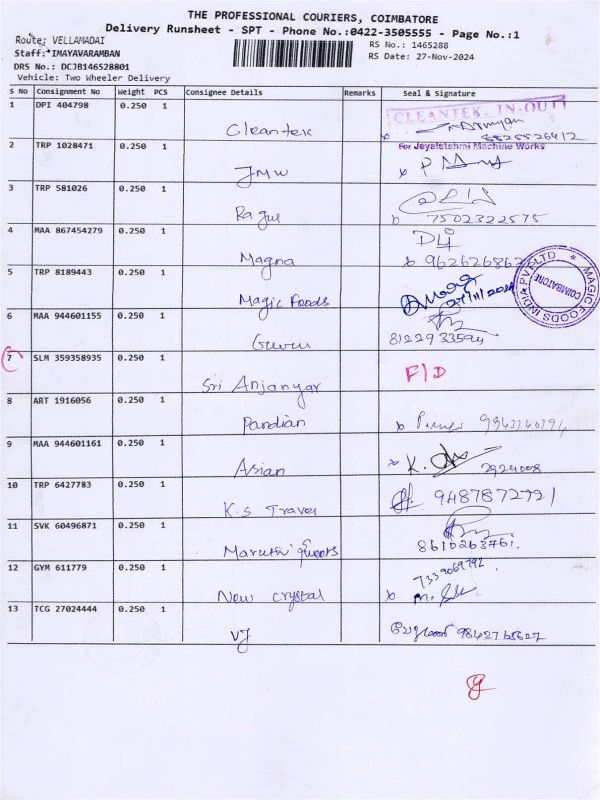 THE PROFESSIONAL COURIERS, COIMBATORE
Delivery Runsheet - SPT - Phone No.:0422-3505555 - Page No.:1
Route: VELLAMADAI
Staff: IMAYAVARAMBAN
DRS No.: DCJB146528801
Vehicle: Two Wheeler Delivery
RS No.: 1465288
RS Date: 27-Nov-2024
S No Consignment No Weight PCS Consignee Details Remarks Seal & Signature
1 DPI 404798 0.250 1
Cleantek
CLEANTEK IN-OUT
2 TRP 1028471 0.250 1
For Jeyalelshmi Machine Works
JMW
3 TRP 581026 0.250 1
Ragul
7502322575
4 MAA 867454279 0.250 1
Magna
5 TRP 8189443 0.250 1
Magic Foods
27/11/2024
MAGIC FOODS INDIA PVT LTD
COIMBATORE
6 MAA 944601155 0.250 1
Guru
8122933594
7 SLM 359358935 0.250 1
Sri Anjanyar
F/D
8 ART 1916056 0.250 1
Pandian
9 MAA 944601161 0.250 1
Asian
2924008
10 TRP 6427783 0.250 1
K.S Travel
9487872721
11 SVK 60496871 0.250 1
Maruthi
8610263761.
12 GYM 611779 0.250 1
7339069792
New crystal
13 TCG 27024444 0.250 1
VJ
9842765627